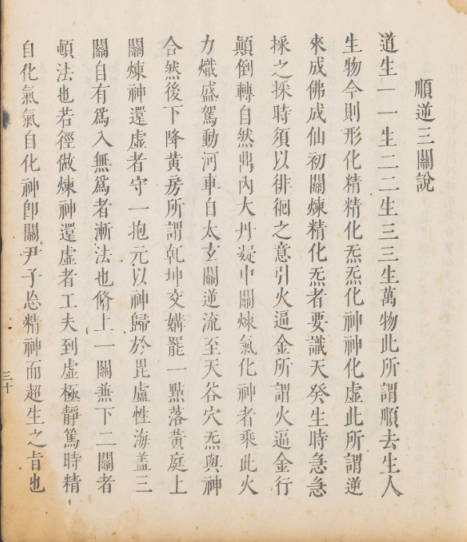 順逆三關說
道生一一生二二生三三生萬物此所謂順去生人
生物今則形化精精化炁炁化神神化虛此所謂逆
來成佛成仙初關煉精化炁者要識天癸生時急急
採之採時須以徘徊之意引火逼金所謂火逼金行
顛倒轉自然鼎內大丹凝中關煉氣化神者乘此火
力熾盛駕動河車自太玄關逆流至天谷穴炁與神
合然後下降黃房所謂乾坤交媾罷一點落黃庭上
關煉神還虛者守一抱元以神歸於毘盧性海盖三
關自有為入無為者漸法也脩上一關兼下二關者
頓法也若徑做煉神還虛者工夫到虛極靜篤時精
自化氣氣自化神卽關尹子忘精神而超生之旨也
三十